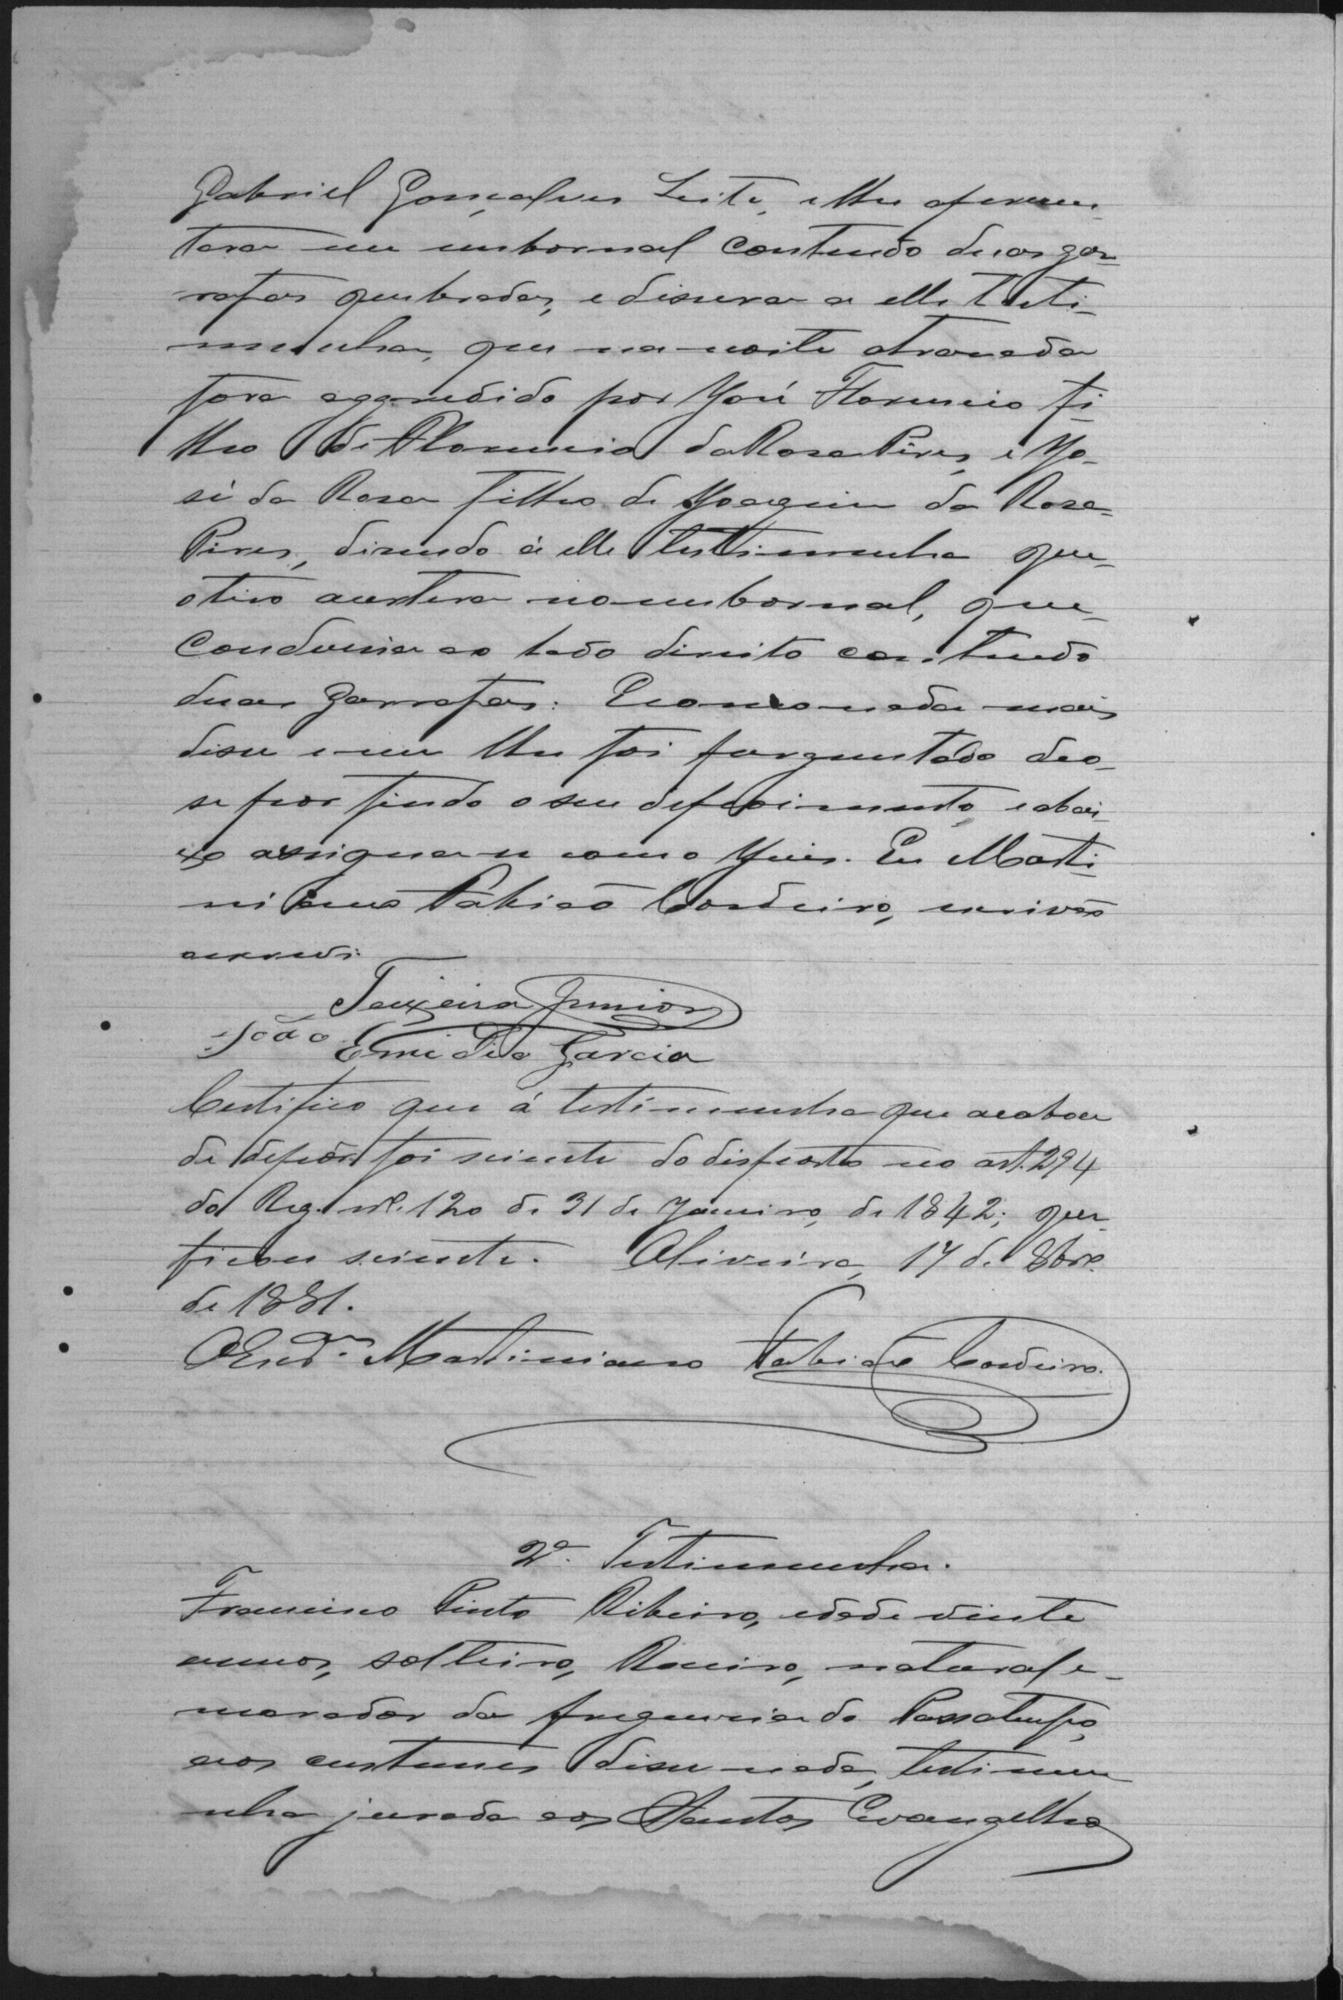 Gabriel Gonçalves Leite, e lhe aprezen-
tara um umbornal contendo duas gar-
rafas quebradas, e dissera a elle testi-
munha, que na noite atrazada
fora aggredido por José Florencio fi-
lho de Florencio da Rosa Pires, e Jo-
sé da Rosa filho de Joaquim da Rosa
Pires, dizendo á elle testimunha que
o tiro acertara no umbornal, que
conduzia ao lado direito contendo
duas garrafas. E como nada mais
disse e nem lhe foi perguntado deo-
se por findo o seu depoimento, e abai-
xo assigna-se com o Juis. Eu Marti-
niano Fabião Cordeiro, escrivão
escrevi.
Teixeira Junior
João Emidio Garcia
Certifico que á testimunha que acabou
de depôr foi sciente do disposto no art. 294
do Reg. nº. 120 de 31 de Janeiro, de 1842; que
ficou sciente. Oliveira, 17 de 8bro.
de 1881.
O Escr.am Martiniano Fabião Cordeiro.
2ª. Testimunha.
Francisco Pinto Ribeiro, edade vinte
annos, solteiro, Roceiro, natural e
morador da freguezia do Passatempo,
aos custumes disse nada, testimu-
nha jurada aos Santos Evangelhos